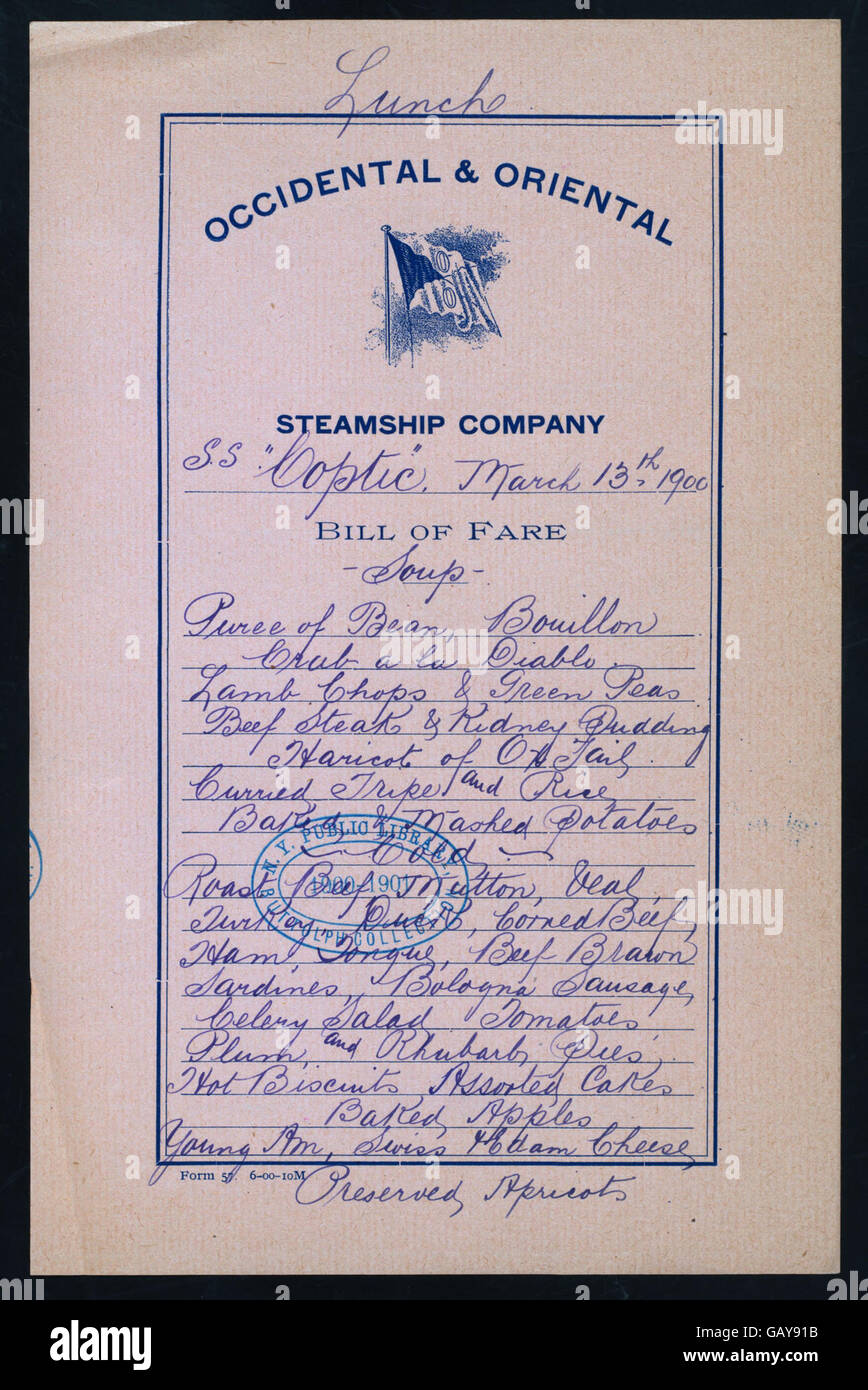 Lunch
OCCIDENTAL & ORIENTAL
O O
STEAMSHIP COMPANY
S.S "Coptic". March 13th 1900
BILL OF FARE
- Soup -
Puree of Bean, Bouillon
Crab a la Diablo
Lamb Chops & Green Peas
Beef Steak & Kidney Pudding
Haricot of Ox Tail
Curried Tripe and Rice
Baked & Mashed Potatoes
Cold
Roast Beef, Mutton, Veal,
Turkey, Duck, Corned Beef,
Ham, Tongue, Beef Brawn
Sardines, Bologna Sausage,
Celery Salad Tomatoes
Plum, and Rhubarb Pies,
Hot Biscuits Assorted Cakes
Baked Apples
Young Am, Swiss & Edam Cheese,
Preserved Apricots
Form 57. 6-00-10M
N.Y. PUBLIC LIBRARY
1900-1901
BUTTOLPH COLLECTION
alamy
a
alamy stock photo
GAY91B
www.alamy.com